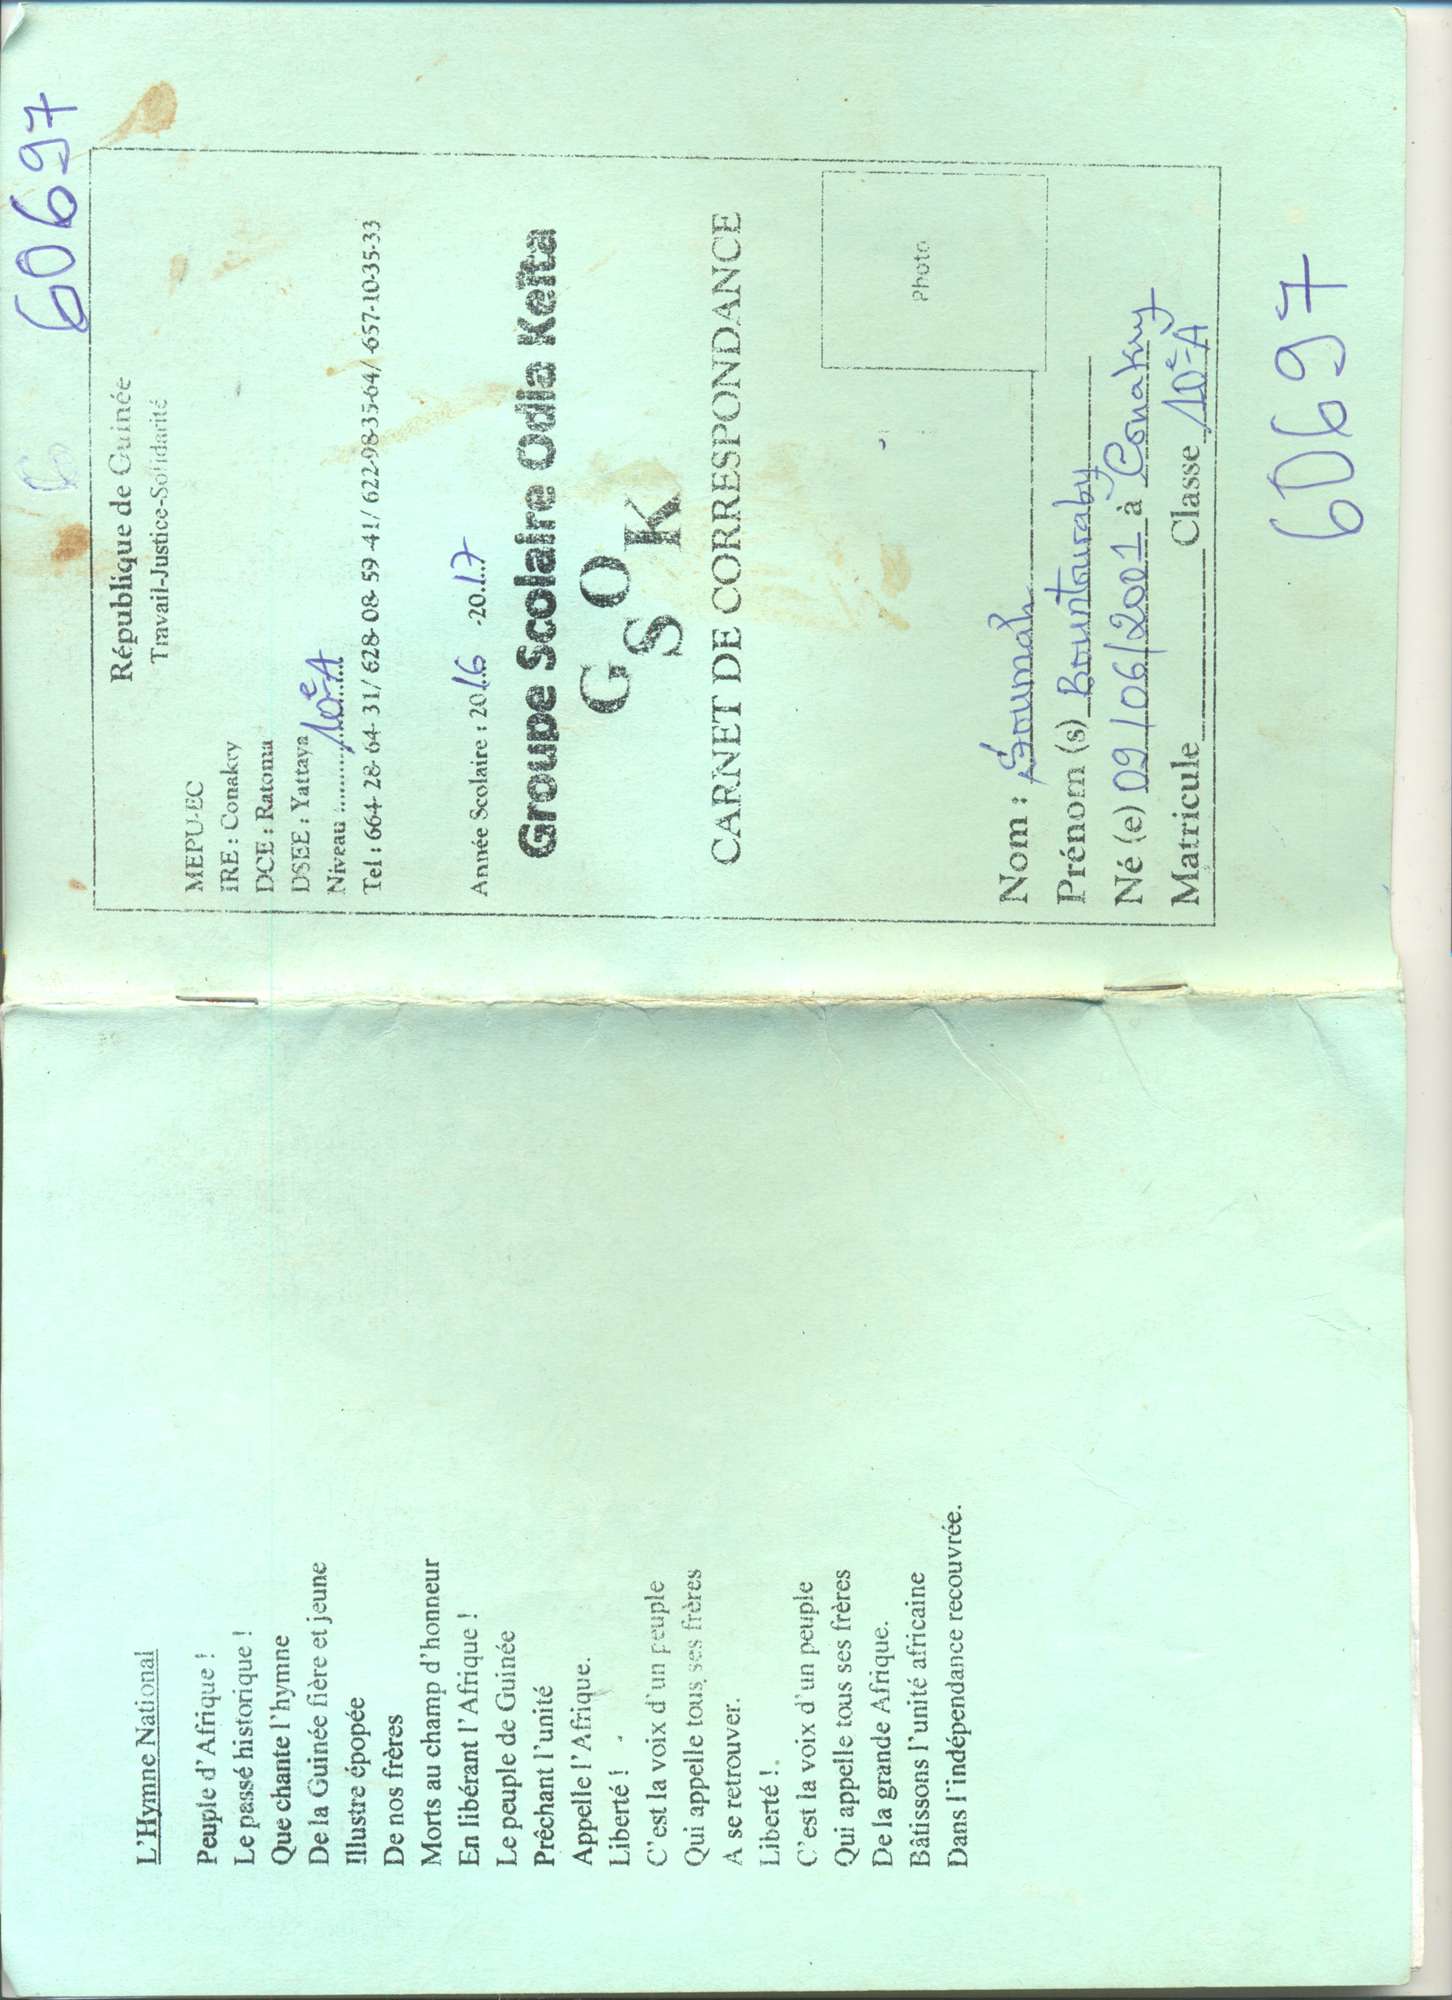 L'Hymne National
Peuple d'Afrique !
Le passé historique !
Que chante l'hymne
De la Guinée fière et jeune
Illustre épopée
De nos frères
Morts au champ d'honneur
En libérant l'Afrique !
Le peuple de Guinée
Prêchant l'unité
Appelle l'Afrique.
Liberté !
C'est la voix d'un peuple
Qui appelle tous ses frères
A se retrouver.
Liberté !.
C'est la voix d'un peuple
Qui appelle tous ses frères
De la grande Afrique.
Bâtissons l'unité africaine
Dans l'indépendance recouvrée.
6 60697
République de Guinée
Travail-Justice-Solidarité
MEPU-EC
IRE : Conakry
DCE : Ratoma
DSEE : Yattaya
Niveau :..........10e A
Tel : 664- 28- 64- 31/ 628- 08- 59 -41/ 622-98-35-64/ -657-10-35-33
Année Scolaire : 2016 -2017
Groupe Scolaire Odia Keïta
G S O K
CARNET DE CORRESPONDANCE
Photo
Nom : Soumah
Prénom (s) Bountouraby
Né (e) 09/06/2001 à Conakry
Matricule Classe 10e-A
60697